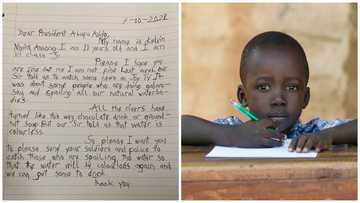 1-10-2024
Dear President Akufo Addo,
My name is Kelvin
I am 11 years old and I am
in class
Please I hope you
are fine but me I am not fine
Sir told us to watch some news on TV. It
was about some people who are doing galam-
sey and spoiling all our natural water bo-
dies
All the rivers have
turned like this way chocolate drink or
soup But our Sir told us that water is
colourless.
So please I want you
to please send your soldiers and police to
catch those who are spoiling the water so
that the water will be colourless again and
we can get some to drink.
Thank you